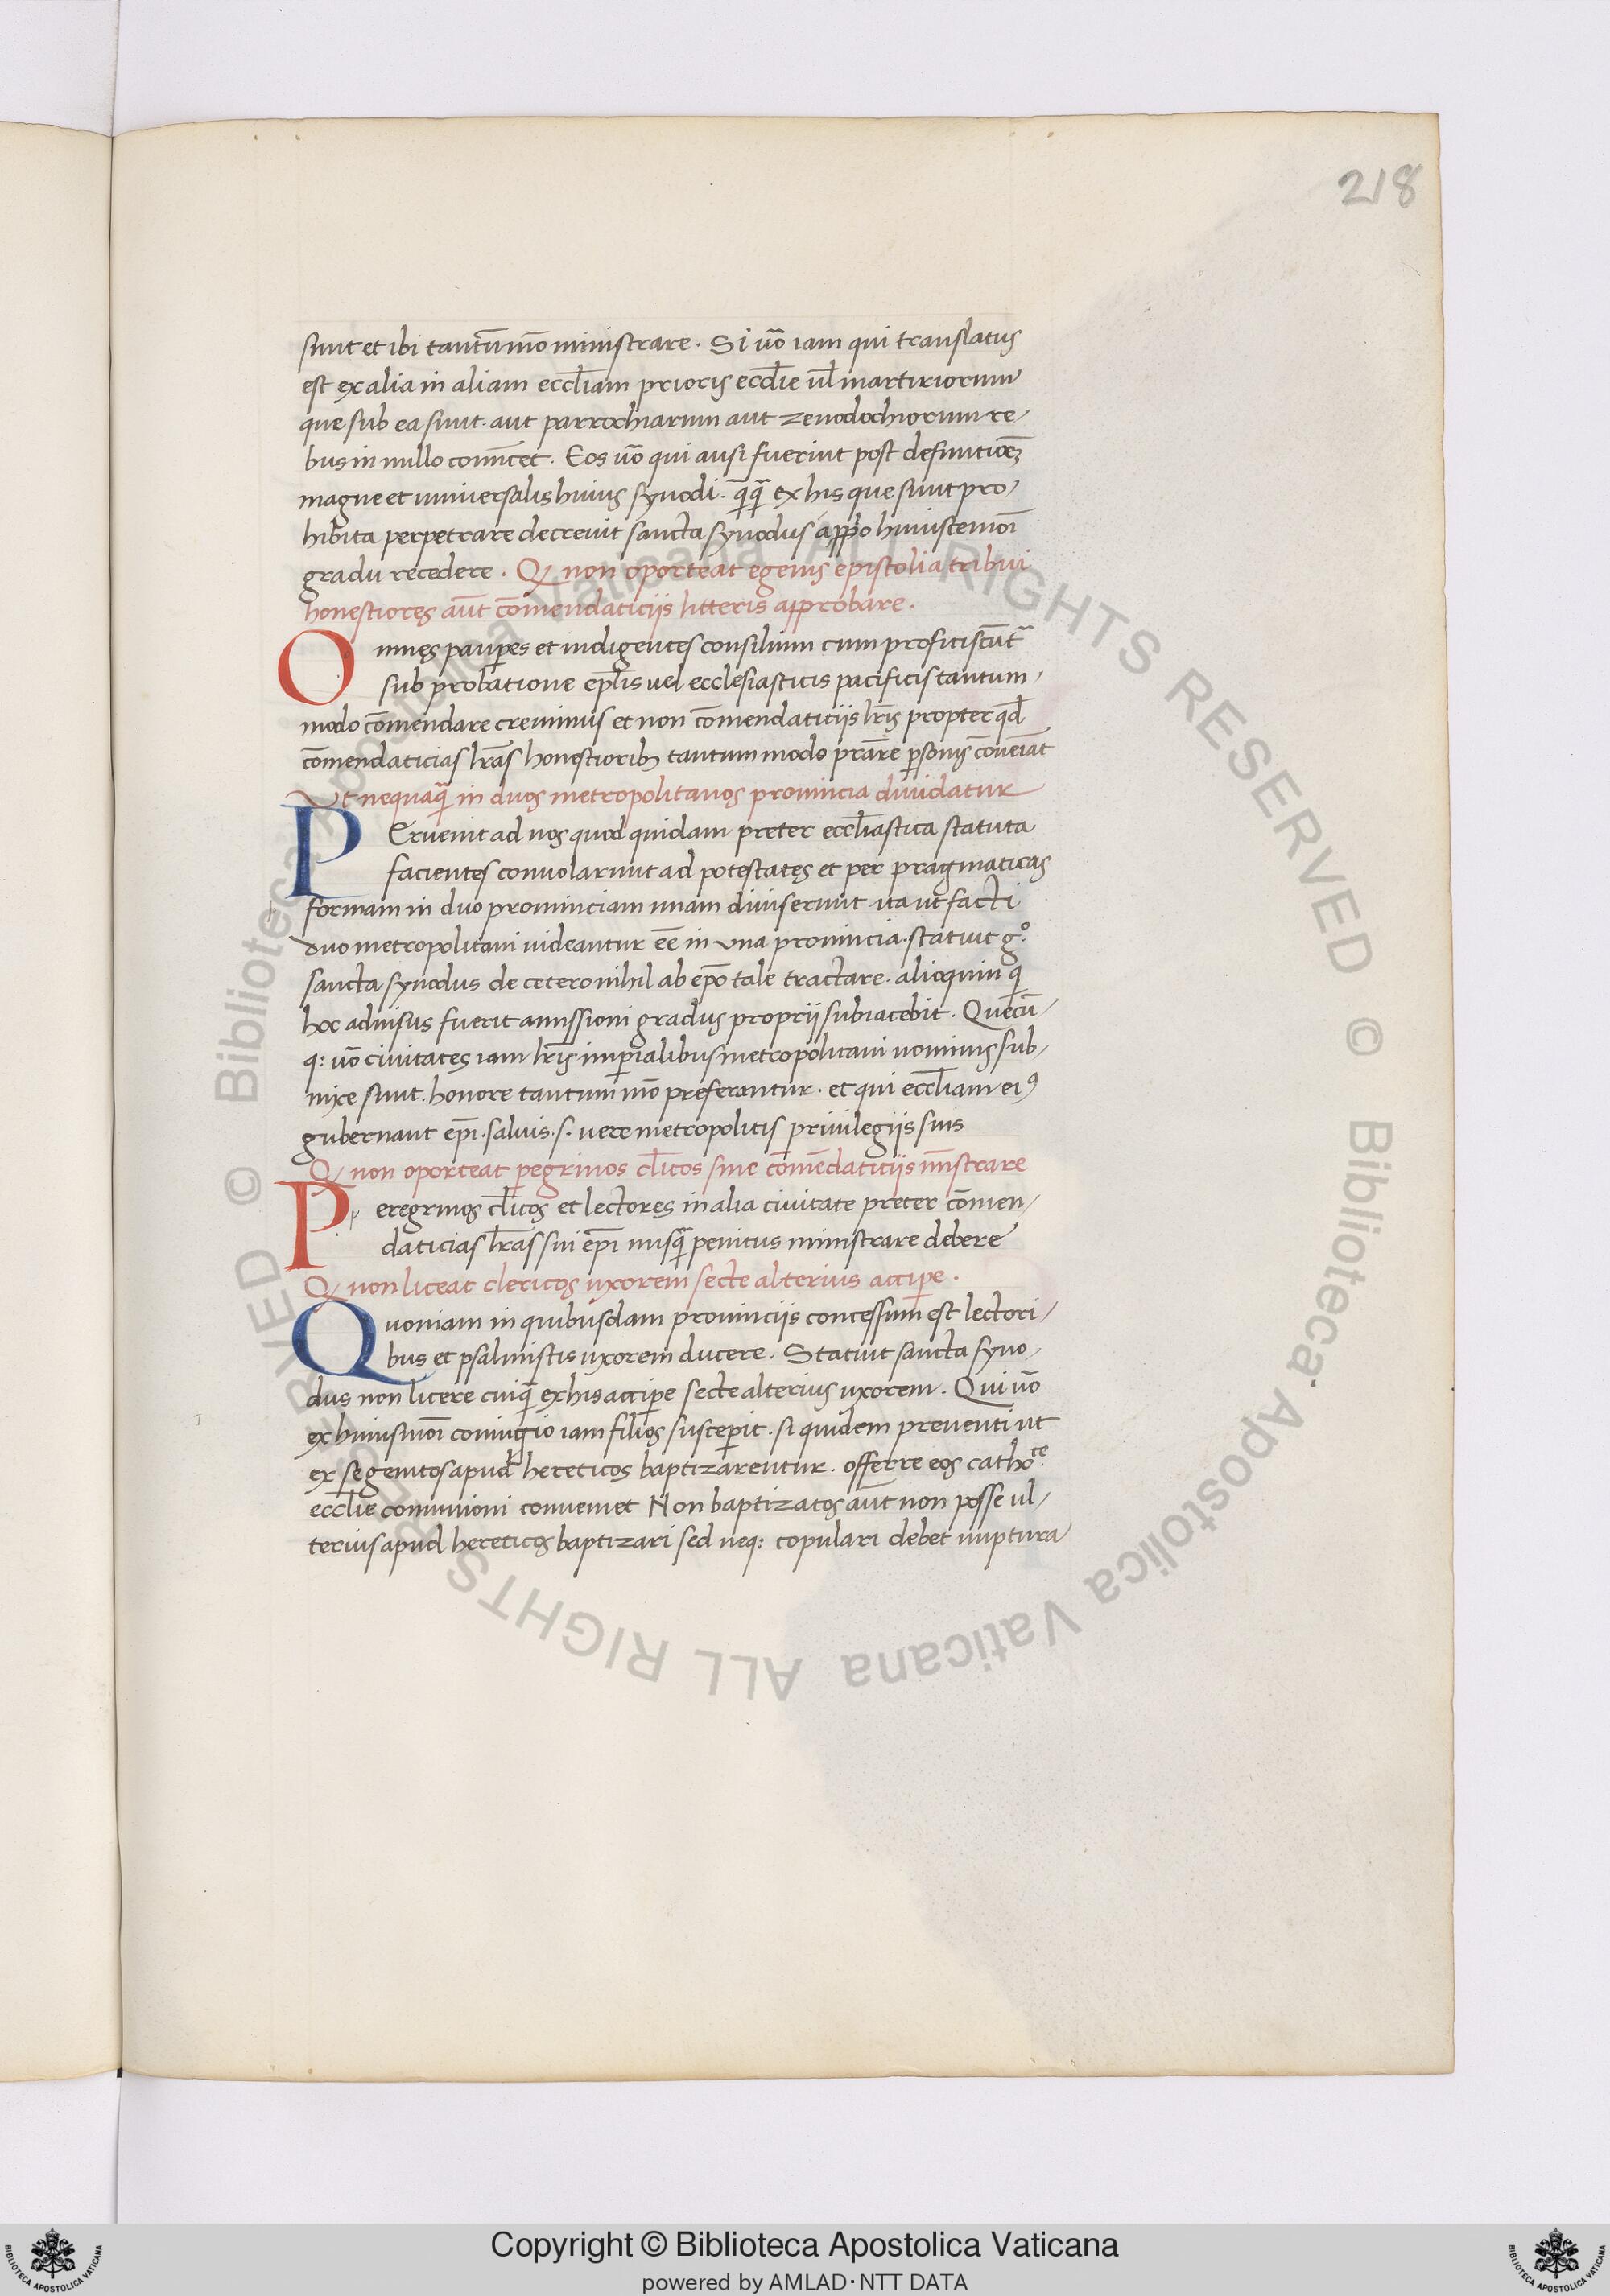 218
sunt et ibi tantūmō ministrare. Si ūo iam qui translatus
est ex alia in aliam eccl̄iam prioris eccl̄ie ul̄ martiriorum
que sub ea sunt. aut parrochiarum aut zenodochiorum re/
bus in nullo com̄icet. Eos ūo qui ausi fuerint post
magne et universalis huius synodi. ex his que sunt pro/
hibita perpetrare decrevit sancta synodus a ꝓpⁱo huiuscemōi
gradu recedere. Q non oporteat egenis epistolia tribui
honestiores aūt cōmendaticijs litteris approbare.
Omnes paup̄es et indigentes consilium cum proficiscūtr̄
sub probatione ep̄lis uel ecclesiasticis pacificis tantum/
modo cōmendare crevimus et non cōmendaticijs l̄ris propter qd̄
cōmendaticias l̄ras honestiorib; tantum modo p̄sonis cōveīat
Ut nequaq̄ in duos metropolitanos provincia dividatur
PErvenit ad nos quod quidam preter eccl̄iastica statuta
facientes convolarunt ad potestates et per pragmaticas
formam in duo provinciam unam diviserunt ita ut facti
duo metropolitani videantur eē in una provincia. statuit g°.
sancta synodus de cetero nihil ab ep̄o tale tractare. alioquin q̄
hoc adnisus fuerit amissioni gradus proprij subiacebit. Quecū/
q: ūo civitates iam l̄ris imp̄ialibus metropolitani nominis sub/
nixe sunt. honore tantum mō preferantur. et qui eccl̄iam eiꝰ
gubernant ep̄i. salvis. s. vere metropolitis privilegijs suis
Q non oporteat p̄egrinos cl̄icos sine cōmēdaticijs mīstrare
Peregrinos cl̄icos et lectores in alia civitate preter cōmen/
daticias l̄ras sui ep̄i nusq̄ penitus ministrare debere
Q non liceat clericos uxorem secte alterius accip̄e.
Quoniam in quibusdam provincijs concessum est lectori/
bus et psalmistis uxorem ducere. Statuit sancta syno/
dus non licere cuiq̄ ex his accip̄e secte alterius uxorem. Qui ūo
ex huiusmōi coniugio iam filios suscep̄it. si quidem preventi ut
ex se genitos apud hereticos baptizarentur. offerre eos cathoᶜᵉ.
eccl̄ie comunioni conveniet Non baptizatos aūt non posse ul/
terius apud hereticos baptizari sed neq: copulari debet nuptura
Copyright © Biblioteca Apostolica Vaticana
powered by AMLAD·NTT DATA
© Biblioteca Apostolica Vaticana ALL RIGHTS RESERVED
© Biblioteca Apostolica Vaticana ALL RIGHTS RESERVED
BIBLIOTECA APOSTOLICA VATICANA
BIBLIOTECA APOSTOLICA VATICANA